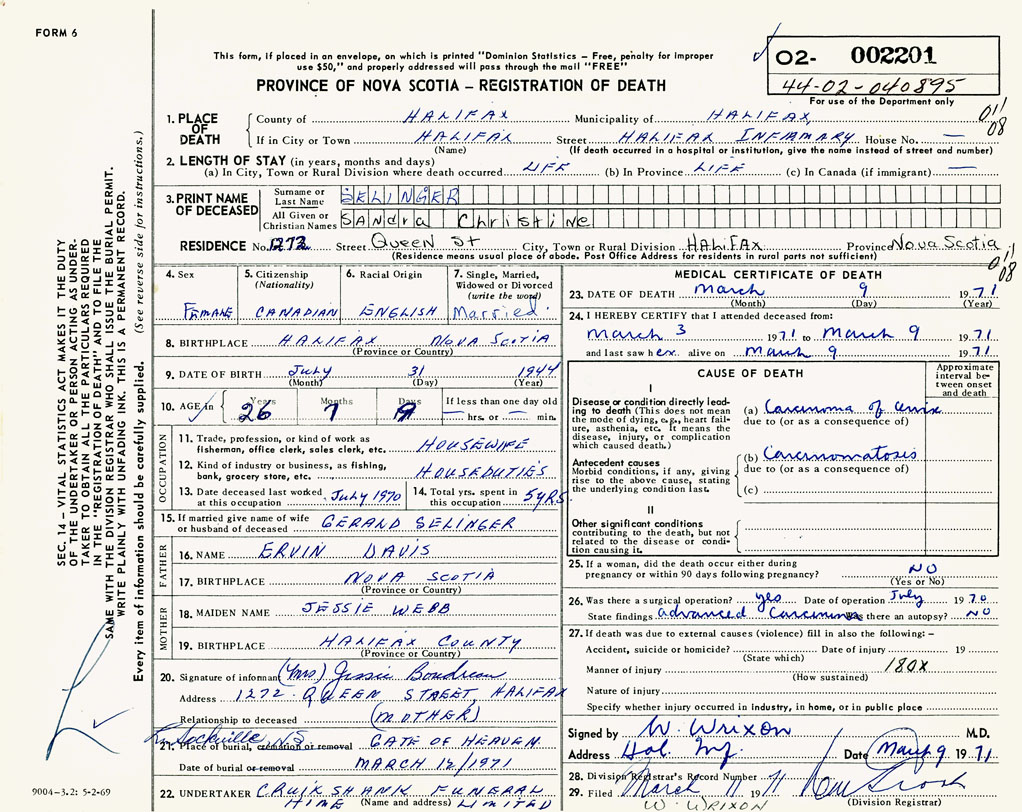 FORM 6
This form, if placed in an envelope, on which is printed "Dominion Statistics – Free, penalty for improper
use $50," and properly addressed will pass through the mail "FREE"
PROVINCE OF NOVA SCOTIA – REGISTRATION OF DEATH
02- 002201
44-02-040895
For use of the Department only
011
08
1. PLACE OF DEATH
County of HALIFAX Municipality of HALIFAX
If in City or Town HALIFAX Street HALIFAX INFIAMARY House No. —
(Name) (If death occurred in a hospital or institution, give the name instead of street and number)
2. LENGTH OF STAY (in years, months and days)
(a) In City, Town or Rural Division where death occurred LIFE (b) In Province LIFE (c) In Canada (if immigrant) —
3. PRINT NAME OF DECEASED
Surname or Last Name SELINGER
All Given or Christian Names SANdra Christine
RESIDENCE No. 1272 Street Queen St City, Town or Rural Division HALIFAX Province Nova Scotia
(Residence means usual place of abode. Post Office Address for residents in rural parts not sufficient)
011
08
4. Sex
FEMALE
5. Citizenship
(Nationality)
CANADIAN
6. Racial Origin
ENGLISH
7. Single, Married,
Widowed or Divorced
(write the word)
Married
8. BIRTHPLACE HALIFAX NOVA SCOTIA
(Province or Country)
9. DATE OF BIRTH July 31 1944
(Month) (Day) (Year)
10. AGE in Years Months Days If less than one day old
26 7 9 — hrs. or — min.
OCCUPATION
11. Trade, profession, or kind of work as
fisherman, office clerk, sales clerk, etc. HOUSEWIFE
12. Kind of industry or business, as fishing,
bank, grocery store, etc. HOUSEDUTIES
13. Date deceased last worked
at this occupation July 1970
14. Total yrs. spent in
this occupation 5 YRS
15. If married give name of wife
or husband of deceased GERALD SELINGER
FATHER
16. NAME ERVIN DAVIS
17. BIRTHPLACE NOVA SCOTIA
(Province or Country)
MOTHER
18. MAIDEN NAME JESSIE WEBB
19. BIRTHPLACE HALIFAX COUNTY
(Province or Country)
20. Signature of informant (Mrs) Jessie Boudreau
Address 1272 QUEEN STREET, HALIFAX
Relationship to deceased (MOTHER)
Lr. Sackville, N.S.
21. Place of burial, cremation or removal GATE OF HEAVEN
Date of burial or removal MARCH 12/1971
22. UNDERTAKER CRUIKSHANK FUNERAL
HOME (Name and address) LIMITED
MEDICAL CERTIFICATE OF DEATH
23. DATE OF DEATH March 9 1971
(Month) (Day) (Year)
24. I HEREBY CERTIFY that I attended deceased from:
March 3 1971 to March 9 1971
and last saw her alive on March 9 1971
CAUSE OF DEATH
Approximate
interval be-
tween onset
and death
I
Disease or condition directly lead-
ing to death (This does not mean
the mode of dying, e.g., heart fail-
ure, asthenia, etc. It means the
disease, injury, or complication
which caused death.)
(a) Carcinoma of cervix
due to (or as a consequence of)
Antecedent causes
Morbid conditions, if any, giving
rise to the above cause, stating
the underlying condition last.
(b) Carcinomatosis
due to (or as a consequence of)
(c)
II
Other significant conditions
contributing to the death, but not
related to the disease or condi-
tion causing it.
25. If a woman, did the death occur either during
pregnancy or within 90 days following pregnancy? NO
(Yes or No)
26. Was there a surgical operation? yes Date of operation July 1970
State findings advanced Carcinoma Was there an autopsy? NO
27. If death was due to external causes (violence) fill in also the following: –
Accident, suicide or homicide? Date of injury 19
(State which)
Manner of injury 180X
(How sustained)
Nature of injury
Specify whether injury occurred in industry, in home, or in public place
Signed by W. Wrixon M.D.
Address Hal. Inf. Date March 9 1971
28. Division Registrar's Record Number
29. Filed March 11 1971
W. WRIXON Division Registrar
SEC. 14 – VITAL STATISTICS ACT MAKES IT THE DUTY
OF THE UNDERTAKER OR PERSON ACTING AS UNDER-
TAKER TO OBTAIN ALL THE PARTICULARS REQUIRED
IN THE "REGISTRATION OF DEATH" AND TO FILE THE
SAME WITH THE DIVISION REGISTRAR WHO SHALL ISSUE THE BURIAL PERMIT.
WRITE PLAINLY WITH UNFADING INK. THIS IS A PERMANENT RECORD.
Every item of information should be carefully supplied. (See reverse side for instructions.)
9004-3.2: 5-2-69